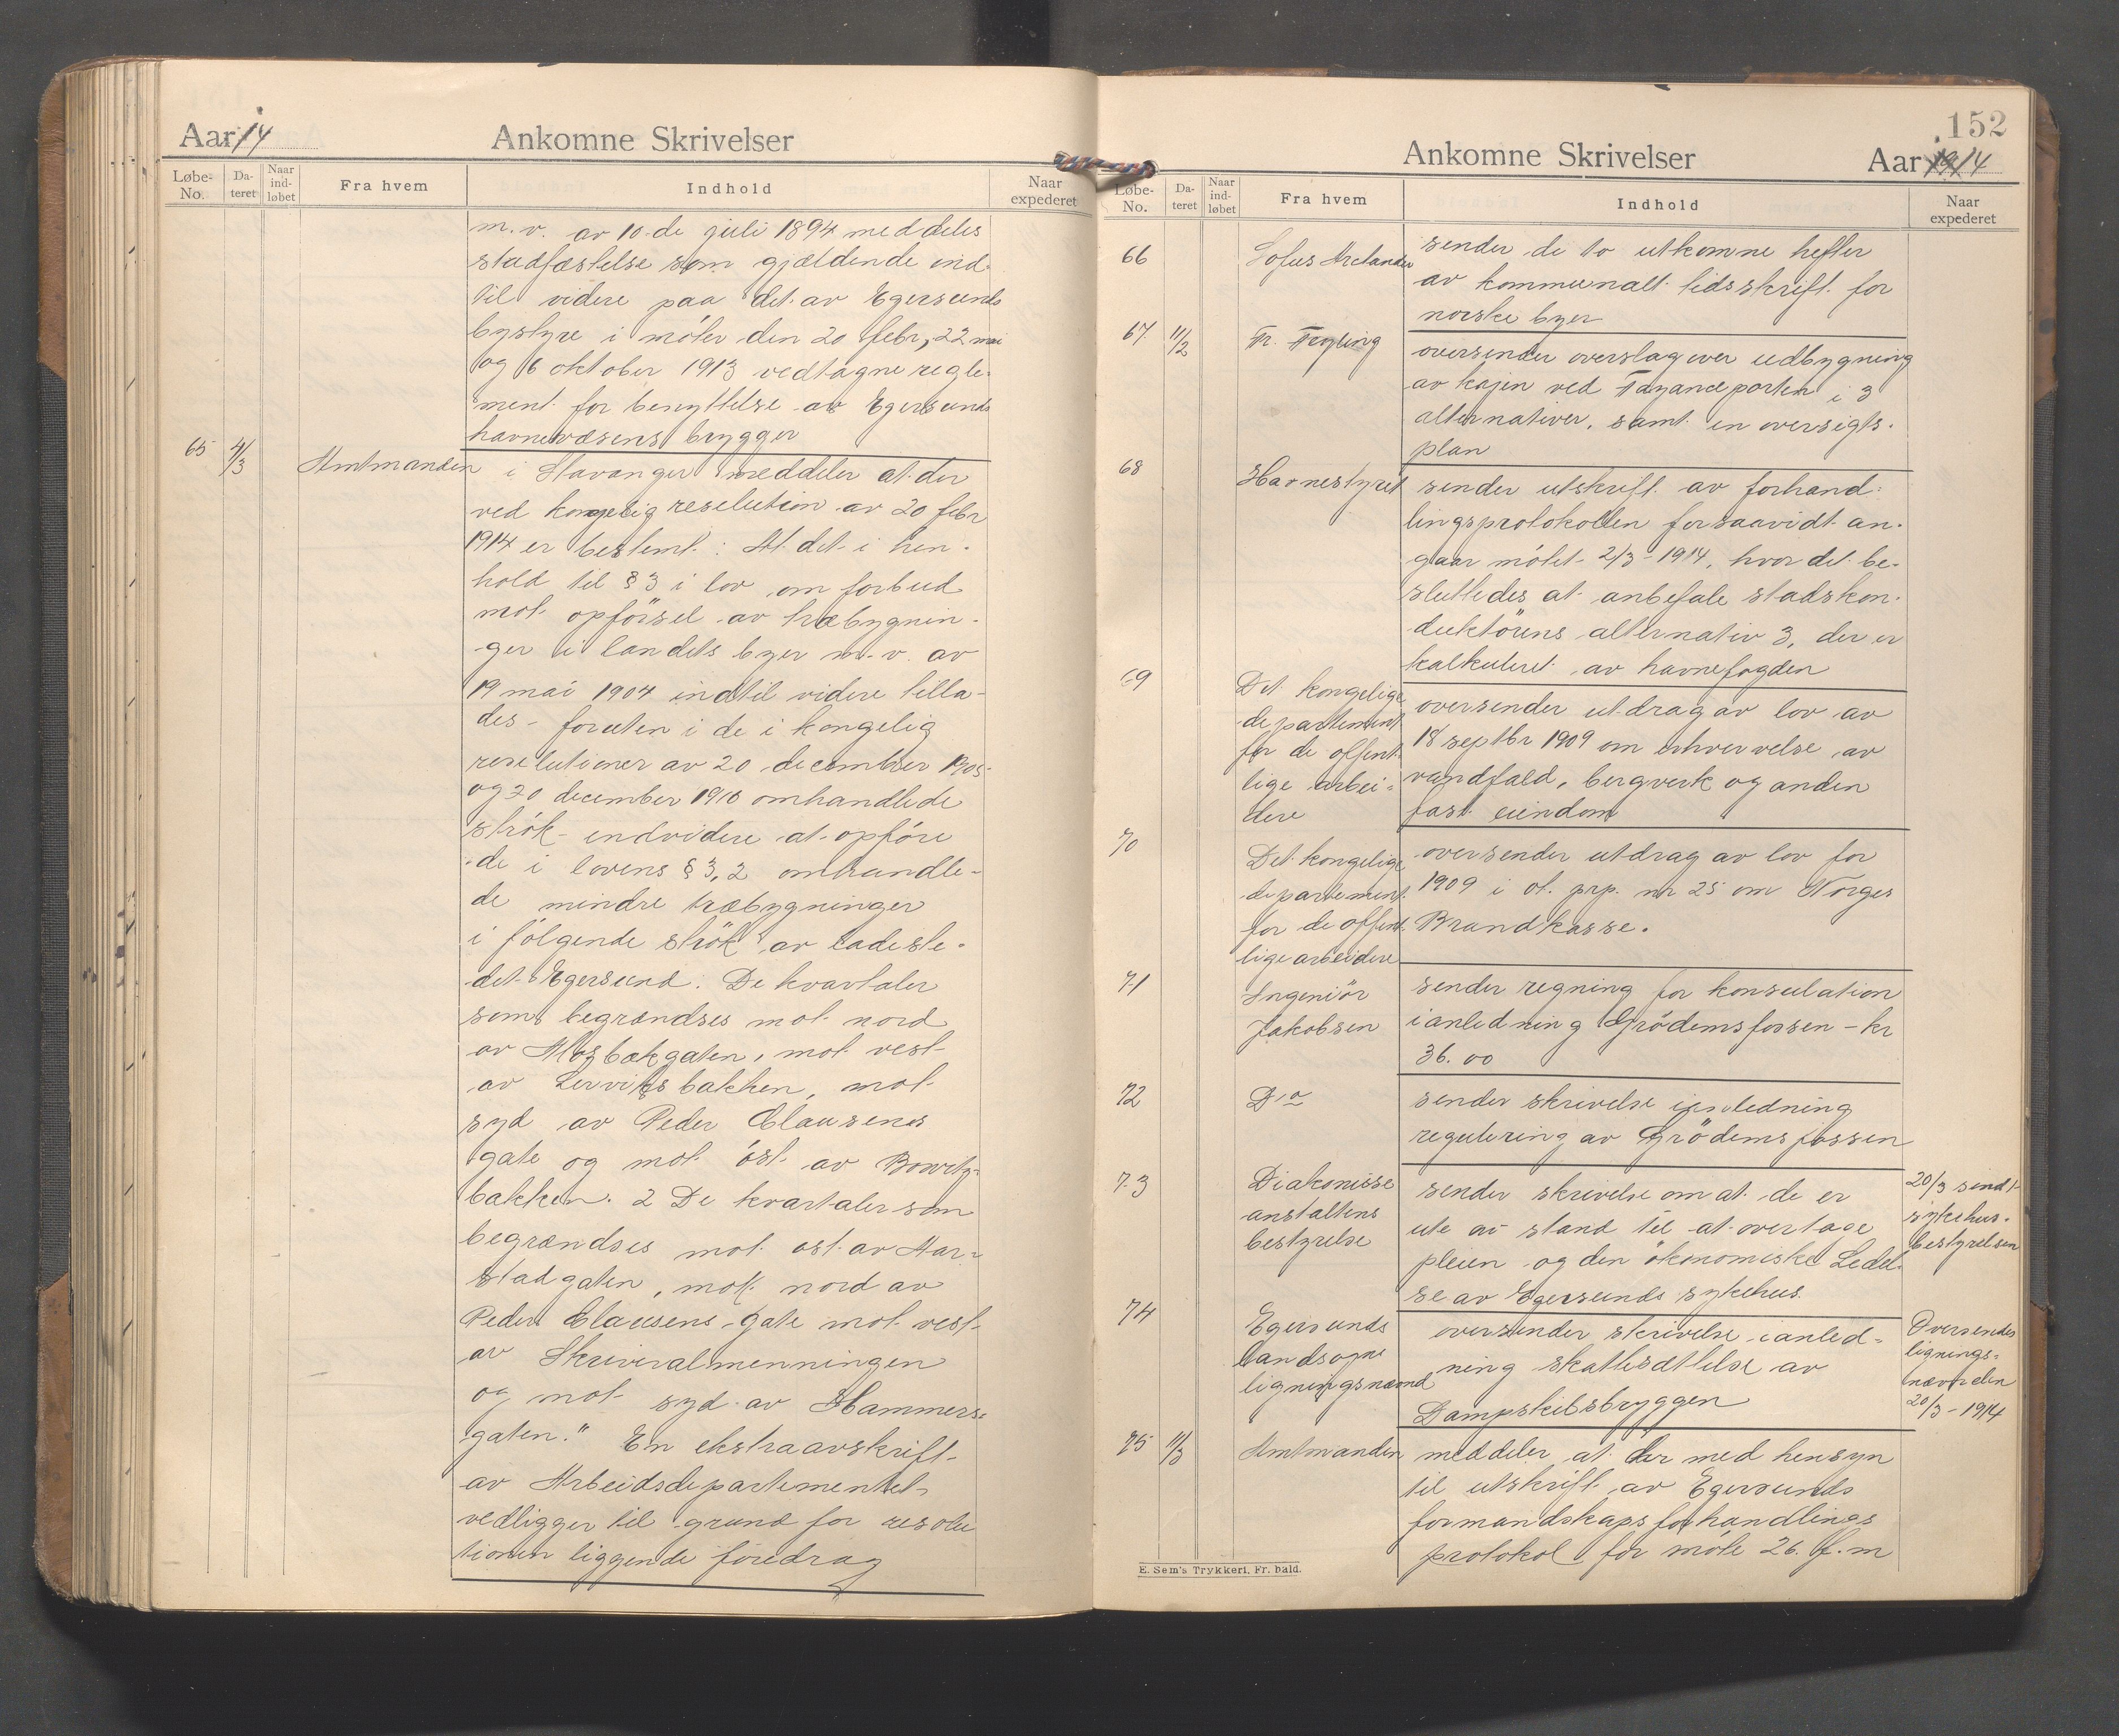 Aar 14
Ankomne Skrivelser
Løbe-No.
Dateret
Naar indløbet
Fra hvem
Indhold
Naar expederet
m.v. av 10-de juli 1894 meddeles
stadfæstelse som gjældende ind-
til videre paa det av Egersunds
bystyre i møter den 20 febr, 22 mai
og 6 oktober 1913 vedtagne regle-
ment for benyttelse av Egersunds
havnevæsens brygger
65 4/3 Amtmanden i Stavanger meddeler at der
ved kongelig resolution av 20 febr
1914 er bestemt: At det i hen-
hold til § 3 i lov om forbud
mot opførsel av træbygnin-
ger i landets byer m.v. av
19 mai 1904 indtil videre tilla-
des - foruten i de i kongelig
resolutioner av 20 december 1905
og 20 december 1910 omhandlede
strøk - endvidere at opføre
de i lovens § 3,2 omhandle-
de mindre træbygninger
i følgende strøk av ladeste-
det Egersund: De kvartaler
som begrændses mot nord
av Mosbækgaten, mot vest
av Lervigsbakken, mot
syd av Peder Clausens
gate og mot øst av Bowitz-
bakken. 2 De kvartaler som
begrændses mot øst av Aar-
stadgaten, mot nord av
Peder Clausens gate mot vest
av Skriveralmenningen
og mot syd av Hammers-
gaten." En ekstraavskrift
av Arbeidsdepartementet
vedligger til grund for resolu
tionen liggende foredrag
152
Ankomne Skrivelser
Aar 1914
Løbe-No.
Dateret
Naar indløbet
Fra hvem
Indhold
Naar expederet
66 Sofus Arctander sender de to utkomne hefter
av kommunalt tidsskrift for
norske byer
67 11/2 Fr. Feyling oversender overslag over udbygning
av kajen ved Fayanceporten i 3
alternativer, samt en oversigts-
plan
68 Havnestyret sender utskrift av forhand-
lingsprotokollen forsaavidt an-
gaar møtet 2/3-1914, hvor det be-
sluttedes at anbefale stadskon-
duktørens alternativ 3, der er
kalkuleret av havnefogden
69 Det kongelige
departement
for de offent-
lige arbei-
dere
oversender utdrag av lov av
18 septbr 1909 om erhvervelse av
vandfald, bergverk og anden
fast eiendom
70 Det kongelige
departement
for de offent-
lige arbeidere
oversender utdrag av lov for
1909 i ot. prp. nr 25 om Norges
Brandkasse.
71 Ingeniør
Jakobsen
sender regning for konsulation
ianledning Grødemsfossen - kr
36.00
72 Do sender skrivelse ianledning
regulering av Grødemsfossen
73 Diakonisse
anstaltens
bestyrelse
sender skrivelse om at de er
ute av stand til at overtage
pleien og den økonomiske Ledel-
se av Egersunds sykehus.
20/3 sendt
sykehus-
bestyrelsen
74 Egersunds
landsogns
ligningsnævnd
oversender skrivelse ianled-
ning skattesættelse av
Dampskibsbryggen
Oversendes
lignings-
nævnden
20/3-1914
75 11/3 Amtmanden meddeler at der med hensyn
til utskrift av Egersunds
formandskapsforhandlings
protokol for møte 26. f.m
E. Sem's Trykkeri, Fr. hald.